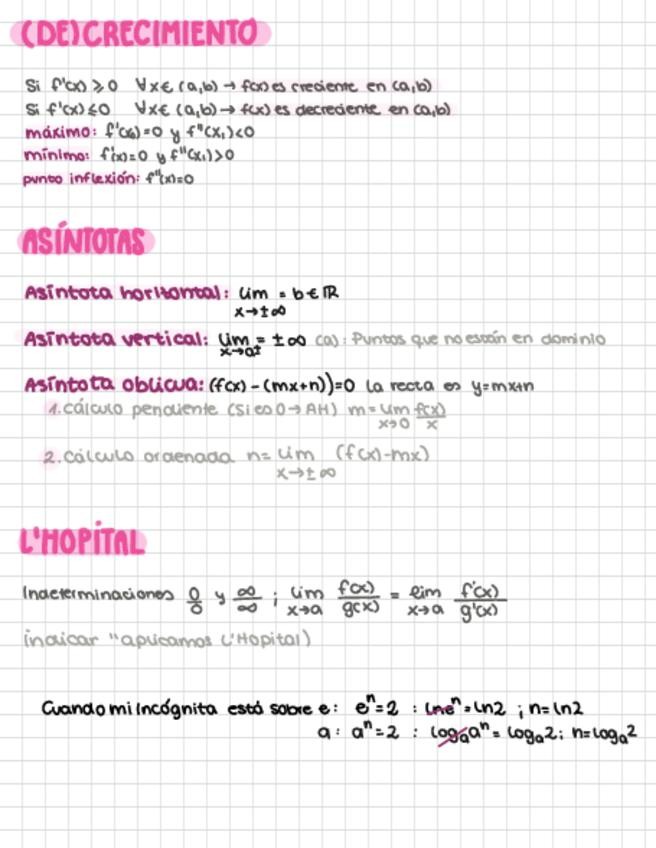 (DE)CRECIMIENTO
Si f'(x) ⩾ 0 ∀x∈ (a,b) → f(x) es creciente en (a,b)
Si f'(x) ≤ 0 ∀x∈ (a,b) → f(x) es decreciente en (a,b)
máximo: f'(x₁)=0 y f''(x₁)<0
mínimo: f'(x)=0 y f''(x₁)>0
punto inflexión: f''(x)=0
ASÍNTOTAS
Asíntota horizontal: lim x→±∞ = b ∈ ℝ
Asíntota vertical: lim x→a± = ±∞ (a): Puntos que no están en dominio
Asíntota oblicua: (f(x) - (mx+n))=0 la recta es y=mx+n
1. cálculo pendiente (Si es 0 → AH) m = lim x→0 f(x)/x
2. cálculo ordenada n = lim x→±∞ (f(x)-mx)
L'HOPITAL
Indeterminaciones 0/0 y ∞/∞ ; lim x→a f(x)/g(x) = lim x→a f'(x)/g'(x)
indicar "aplicamos L'Hopital)
Cuando mi incógnita está sobre e: eⁿ=2 : lneⁿ=ln2 ; n=ln2
a: aⁿ=2 : logₐaⁿ = logₐ2; n=logₐ2